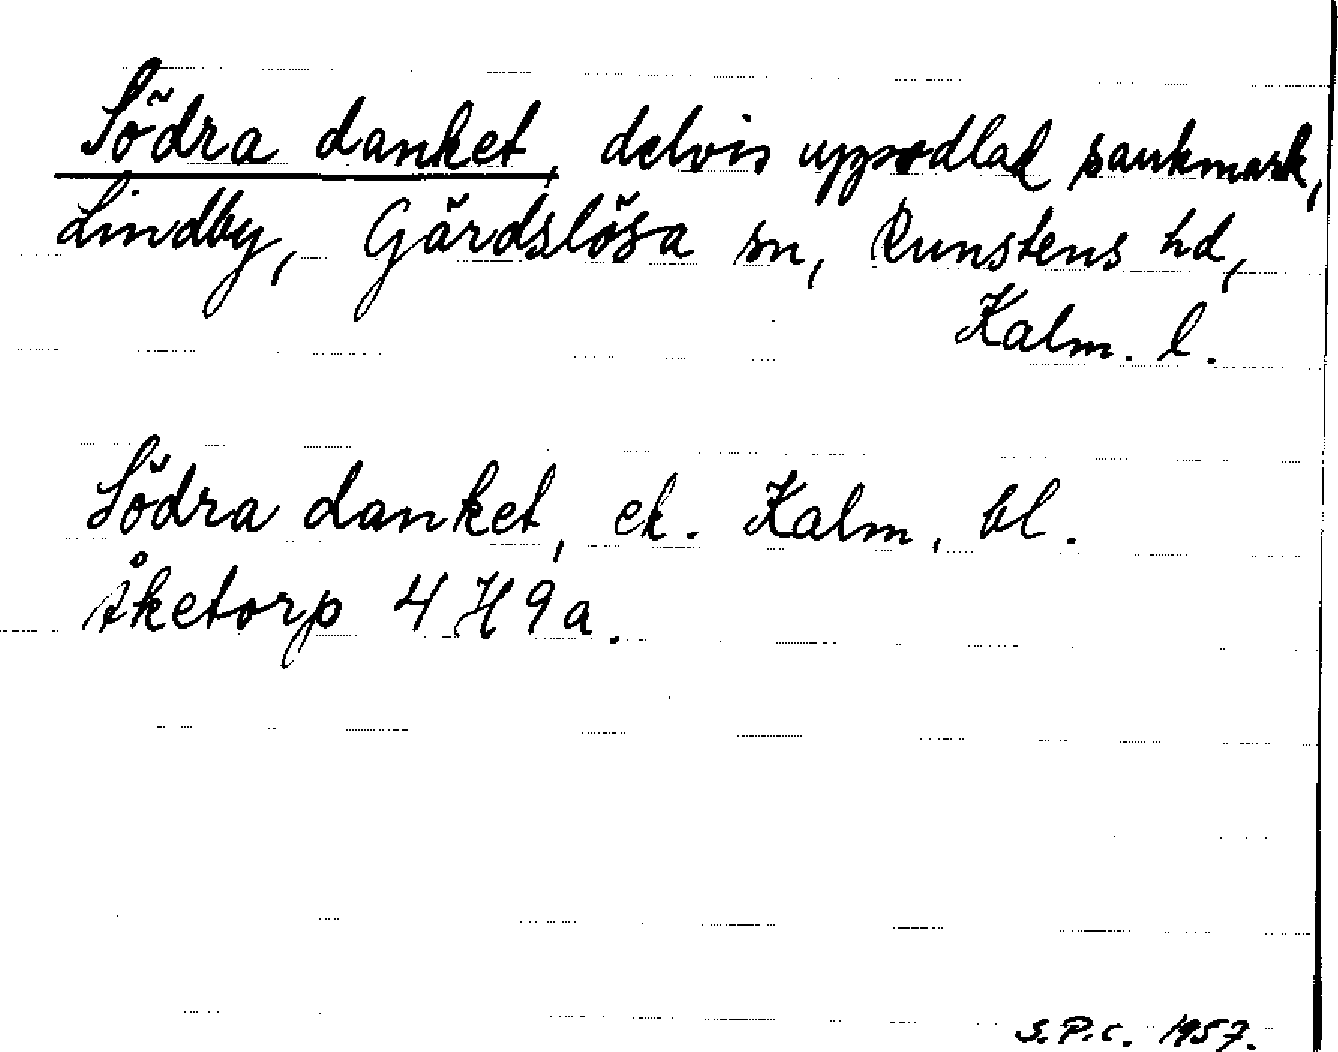 Södra danket, delvis uppodlad sankmark,
Lindby, Gärdslösa sn, Runstens hd,
Kalm. l.
Södra danket, ek. Kalm. bl.
Åketorp 4 H 9 a.
S.P.C. 1957.